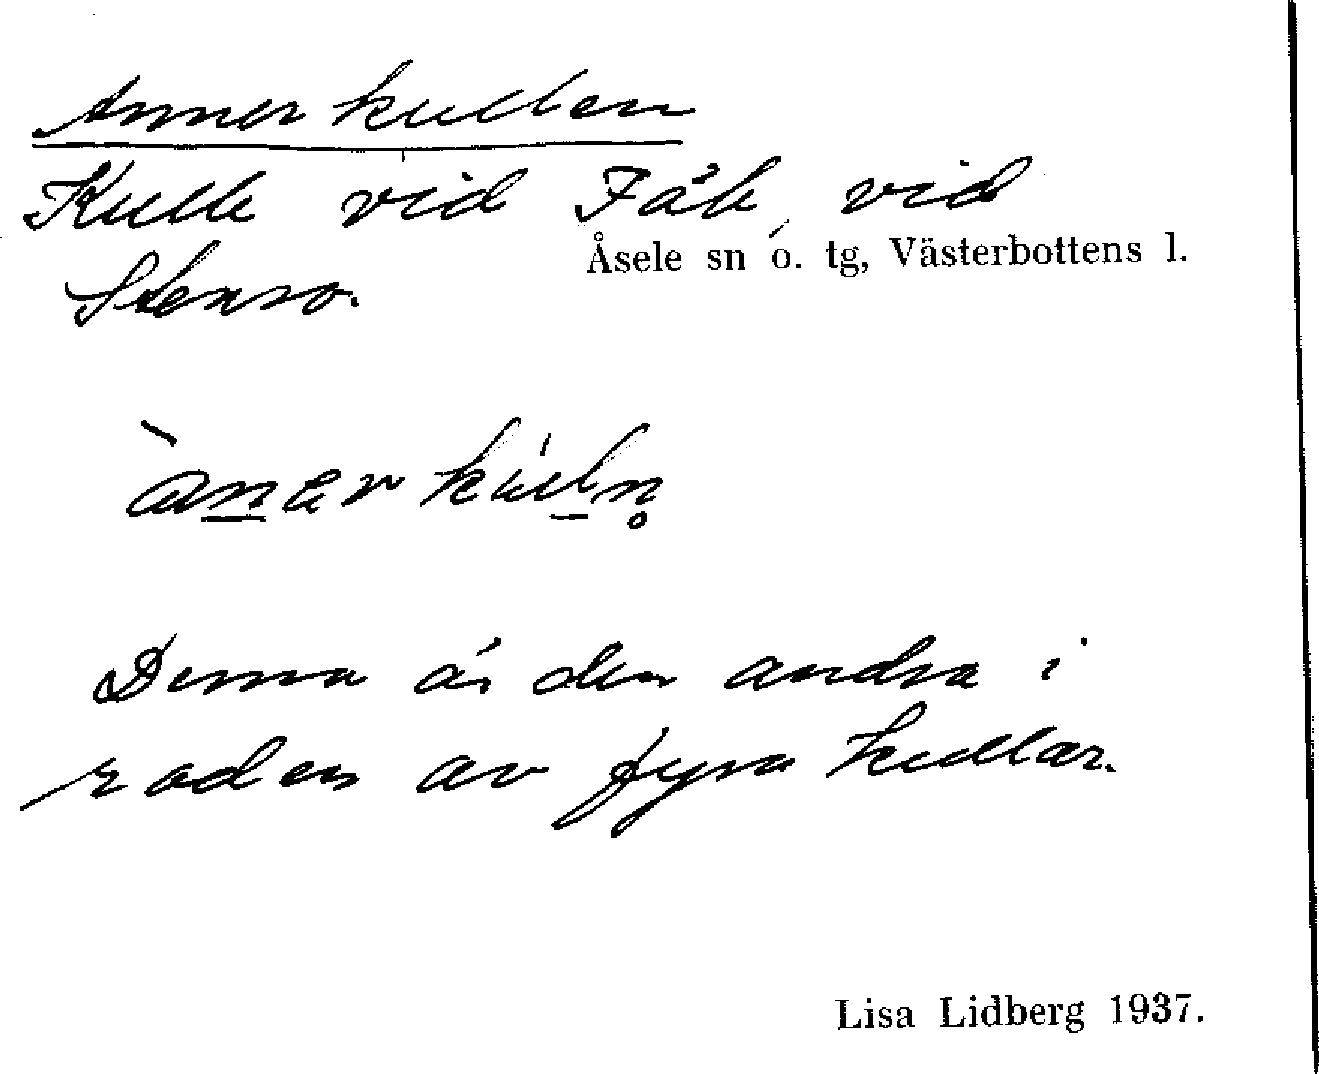 Annerkullen
Kulle vid Jäk, vid
Åsele sn o. tg, Västerbottens l.
Stenso.
ànarkúln̥
Denna är den andra i
raden av fyra kullar.
Lisa Lidberg 1937.